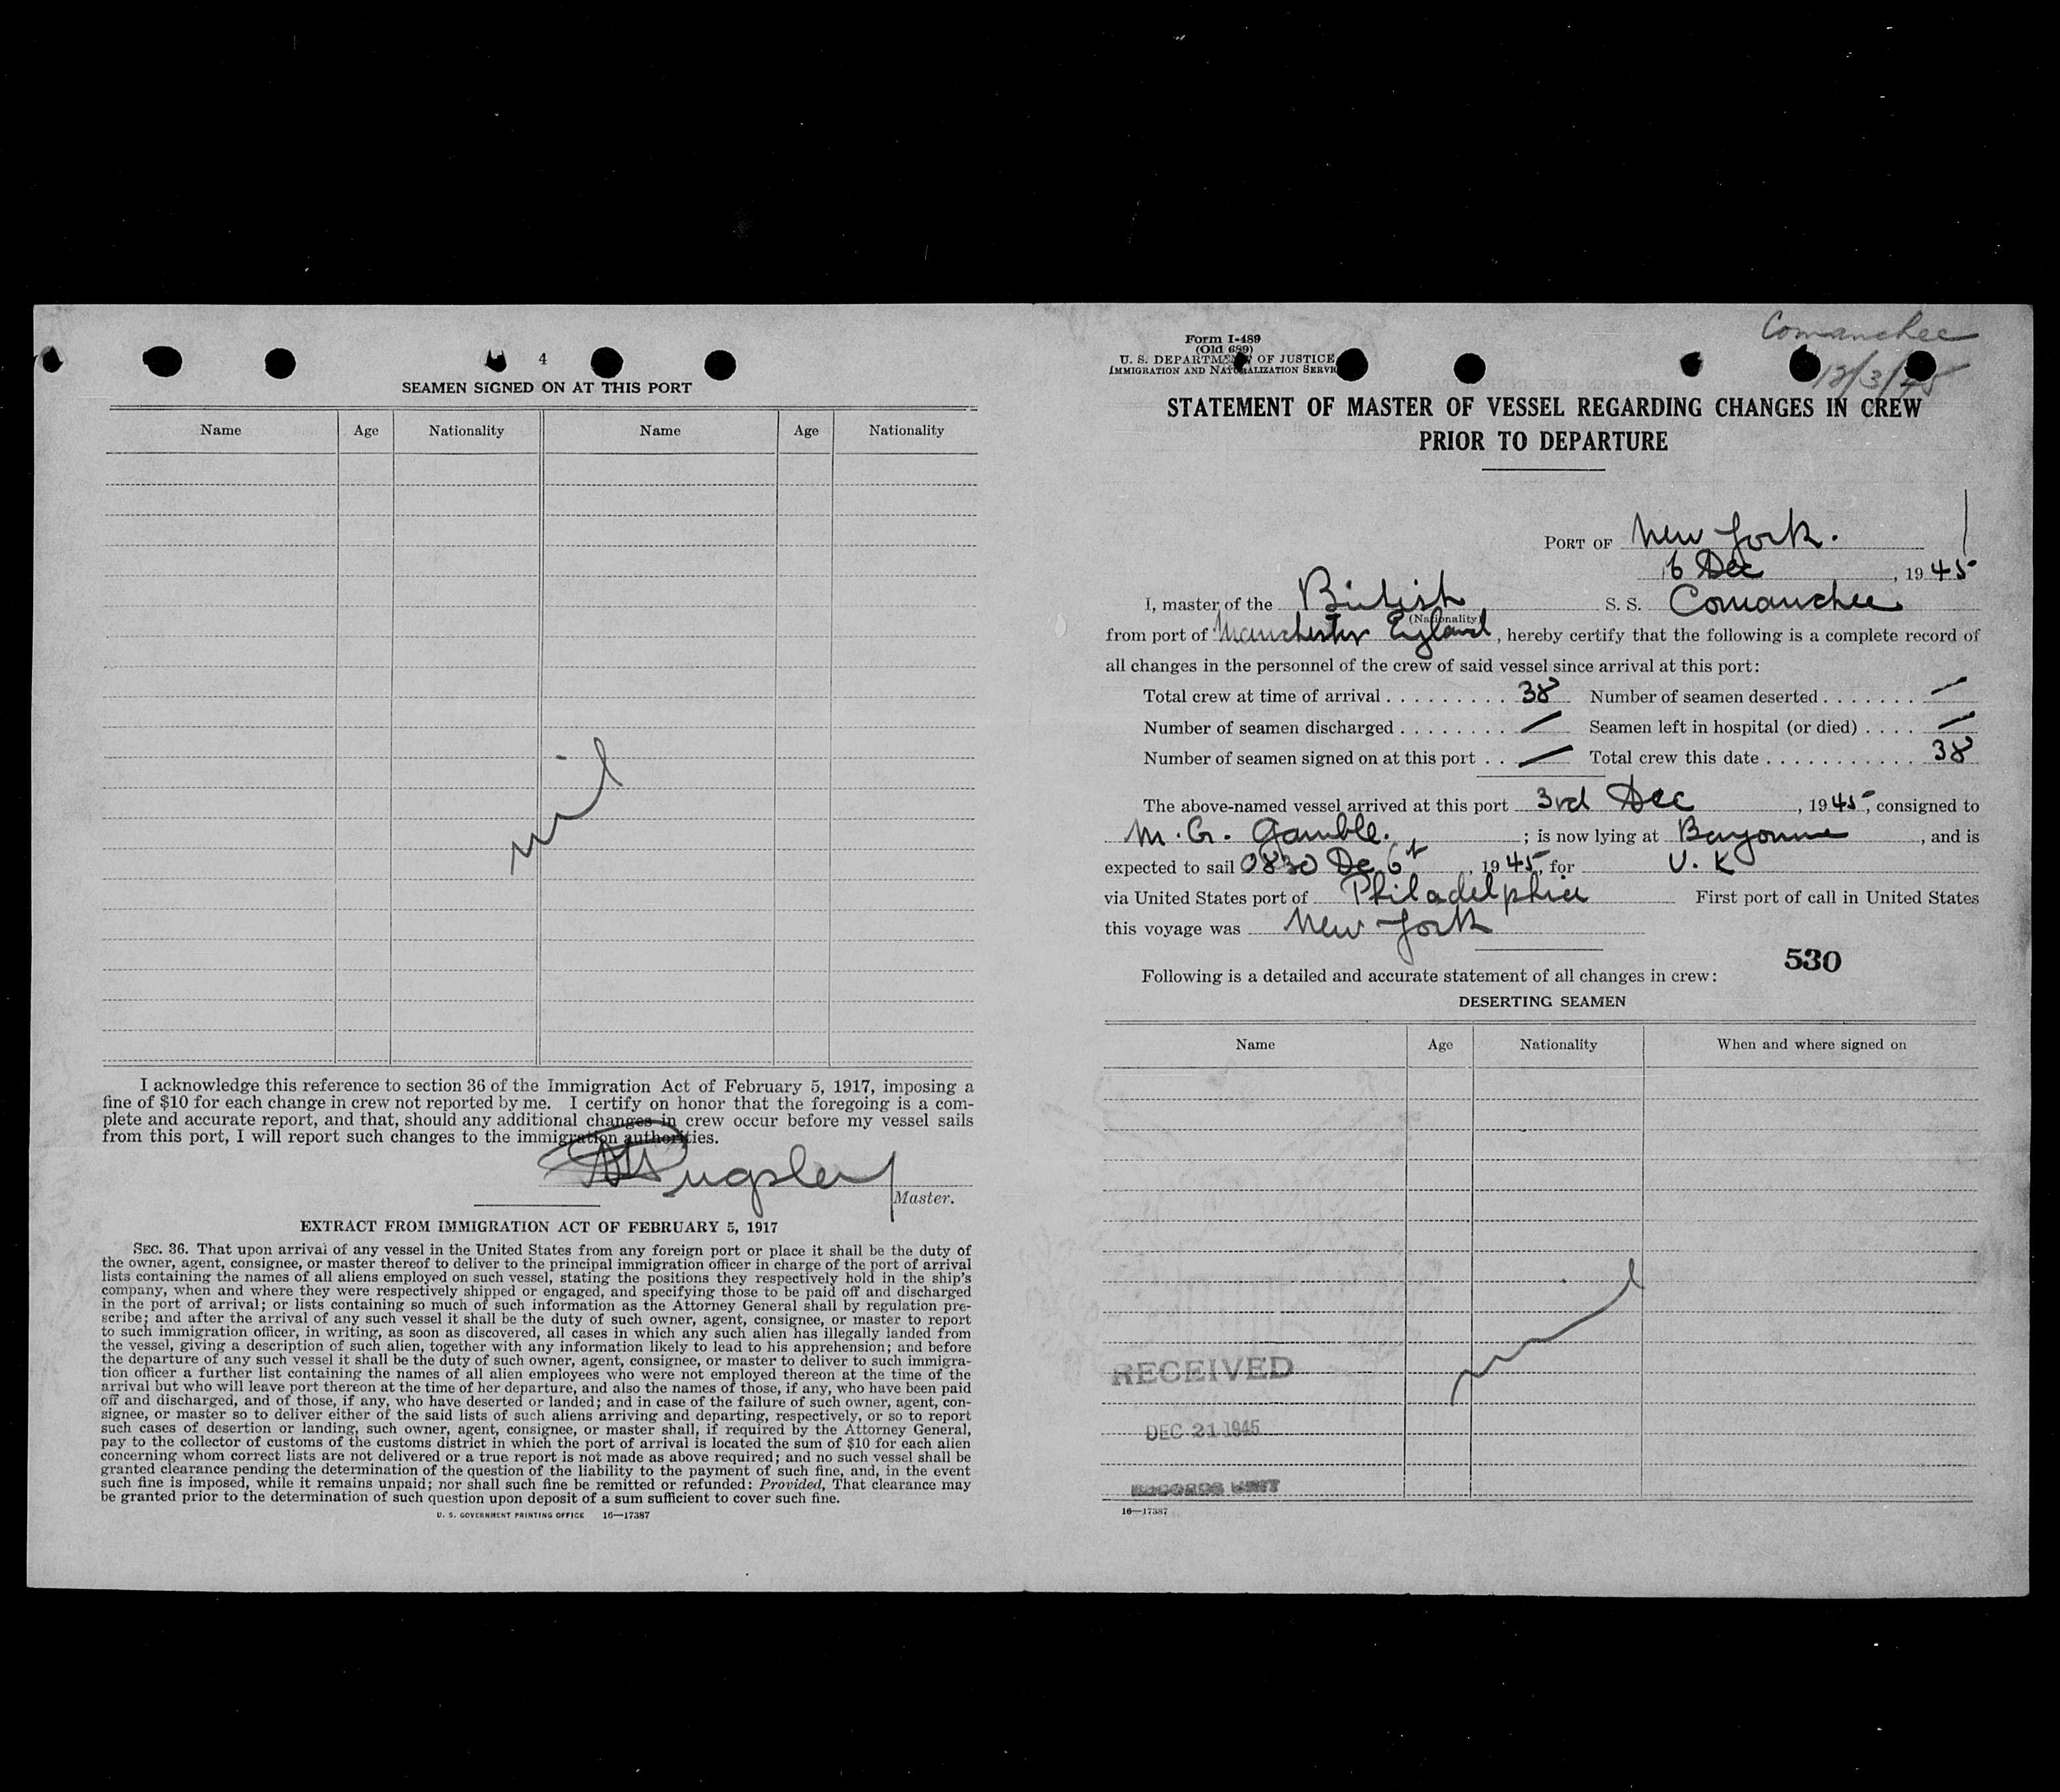 4
SEAMEN SIGNED ON AT THIS PORT
Name Age Nationality Name Age Nationality
nil
I acknowledge this reference to section 36 of the Immigration Act of February 5, 1917, imposing a
fine of $10 for each change in crew not reported by me. I certify on honor that the foregoing is a com-
plete and accurate report, and that, should any additional changes in crew occur before my vessel sails
from this port, I will report such changes to the immigration authorities.
Pugsley
Master.
EXTRACT FROM IMMIGRATION ACT OF FEBRUARY 5, 1917
SEC. 36. That upon arrival of any vessel in the United States from any foreign port or place it shall be the duty of
the owner, agent, consignee, or master thereof to deliver to the principal immigration officer in charge of the port of arrival
lists containing the names of all aliens employed on such vessel, stating the positions they respectively hold in the ship's
company, when and where they were respectively shipped or engaged, and specifying those to be paid off and discharged
in the port of arrival; or lists containing so much of such information as the Attorney General shall by regulation pre-
scribe; and after the arrival of any such vessel it shall be the duty of such owner, agent, consignee, or master to report
to such immigration officer, in writing, as soon as discovered, all cases in which any such alien has illegally landed from
the vessel, giving a description of such alien, together with any information likely to lead to his apprehension; and before
the departure of any such vessel it shall be the duty of such owner, agent, consignee, or master to deliver to such immigra-
tion officer a further list containing the names of all alien employees who were not employed thereon at the time of the
arrival but who will leave port thereon at the time of her departure, and also the names of those, if any, who have been paid
off and discharged, and of those, if any, who have deserted or landed; and in case of the failure of such owner, agent, con-
signee, or master so to deliver either of the said lists of such aliens arriving and departing, respectively, or so to report
such cases of desertion or landing, such owner, agent, consignee, or master shall, if required by the Attorney General,
pay to the collector of customs of the customs district in which the port of arrival is located the sum of $10 for each alien
concerning whom correct lists are not delivered or a true report is not made as above required; and no such vessel shall be
granted clearance pending the determination of the question of the liability to the payment of such fine, and, in the event
such fine is imposed, while it remains unpaid; nor shall such fine be remitted or refunded: Provided, That clearance may
be granted prior to the determination of such question upon deposit of a sum sufficient to cover such fine.
U. S. GOVERNMENT PRINTING OFFICE 16—17387
Comanchee
12/3/45
Form I-489
(Old 689)
U. S. DEPARTMENT OF JUSTICE
IMMIGRATION AND NATURALIZATION SERVICE
STATEMENT OF MASTER OF VESSEL REGARDING CHANGES IN CREW
PRIOR TO DEPARTURE
PORT OF New York.
6 Dec, 1945
I, master of the British S. S. Comanchee
(Nationality)
from port of Manchester England, hereby certify that the following is a complete record of
all changes in the personnel of the crew of said vessel since arrival at this port:
Total crew at time of arrival . . . . . . . . . 38 Number of seamen deserted . . . . . . . —
Number of seamen discharged . . . . . . . . — Seamen left in hospital (or died) . . . . —
Number of seamen signed on at this port . . — Total crew this date . . . . . . . . . . . . 38
The above-named vessel arrived at this port 3rd Dec, 1945, consigned to
M. G. Gamble. ; is now lying at Bayonne, and is
expected to sail 0830 De 6t, 1945, for U. K
via United States port of Philadelphia First port of call in United States
this voyage was New York
530
Following is a detailed and accurate statement of all changes in crew:
DESERTING SEAMEN
Name Age Nationality When and where signed on
nil
RECEIVED
DEC 21 1945
RECORDS UNIT
16—17387